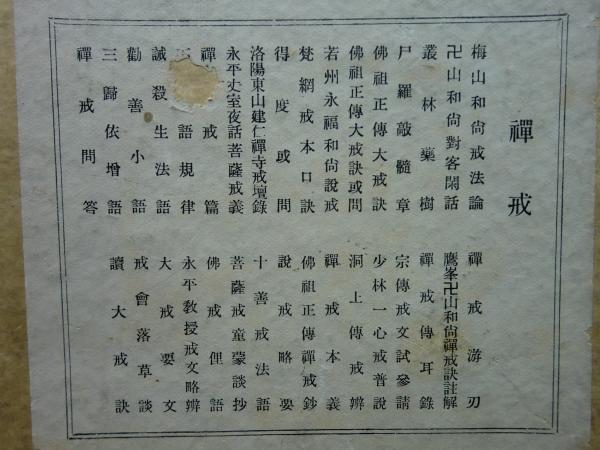 禪戒
梅山和尙戒法論
卍山和尙對客閑話
叢林藥樹
尸羅敲髓章
佛祖正傳大戒訣
佛祖正傳大戒訣或問
若州永福和尙說戒
梵網戒本口訣
得度或問
洛陽東山建仁禪寺戒壇錄
永平丈室夜話菩薩戒義
禪戒篇
語規律
誡殺生法語
勸善小語
三歸依增語
禪戒問答
禪戒游刃
鷹峯卍山和尙禪戒訣註解
禪戒傳耳錄
宗傳戒文試參請
少林一心戒普說
洞上傳戒辨
禪戒本義
佛祖正傳禪戒鈔
說戒略要
十善戒法語
菩薩戒童蒙談抄
佛戒俚語
永平敎授戒文略辨
大戒要文
戒會落草談
讀大戒訣